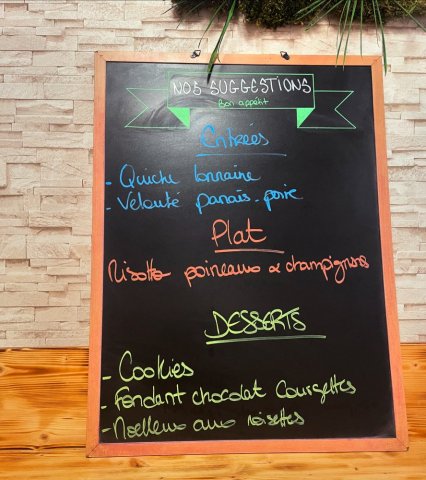 NOS SUGGESTIONS
Bon appétit
Entrées
- Quiche lorraine
- Velouté panais-poire
Plat
Risotto poireaux & champignons
DESSERTS
- Cookies
- Fondant chocolat Courgettes
- Moelleux aux noisettes